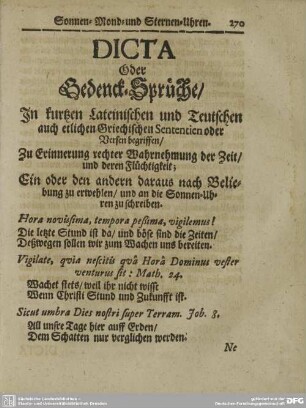 Sonnen- Mond- und Sternen-Uhren. 270
DICTA
Oder
Gedenck-Sprüche/
In kurtzen Lateinischen und Teutschen
auch etlichen Griechischen Sentencien oder
Versen begriffen/
Zu Erinnerung rechter Wahrnehmung der Zeit/
und deren Flüchtigkeit;
Ein oder den andern daraus nach Belie-
bung zu erwehlen/ und an die Sonnen-Uh-
ren zu schreiben.
Hora novissima, tempora pessima, vigilemus!
Die letzte Stund ist da/ und böse sind die Zeiten/
Deßwegen sollen wir zum Wachen uns bereiten.
Vigilate, qvia nescitis qvâ Horâ Dominus vester
venturus sit: Math. 24.
Wachet stets/ weil ihr nicht wisst
Wenn Christi Stund und Zukunfft ist.
Sicut umbra Dies nostri super Terram. Job. 8.
All unsre Tage hier auff Erden/
Dem Schatten nur verglichen werden.
Ne